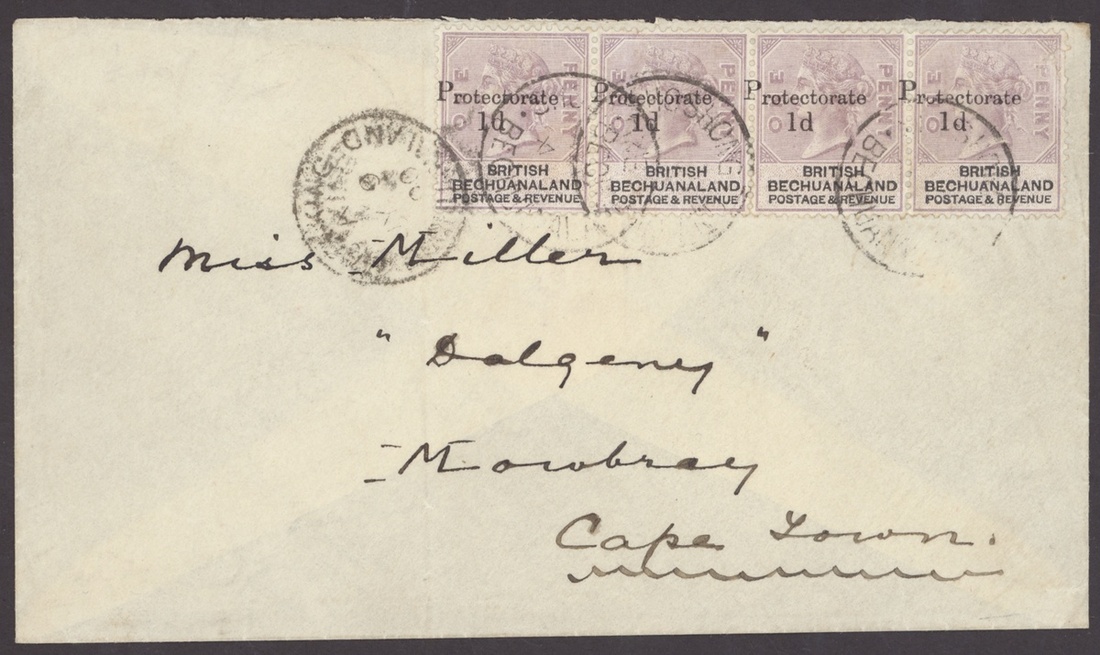 ONE PENNY ONE PENNY ONE PENNY ONE PENNY
Protectorate Protectorate Protectorate Protectorate
1d 1d 1d 1d
BRITISH BRITISH BRITISH BRITISH
BECHUANALAND BECHUANALAND BECHUANALAND BECHUANALAND
POSTAGE & REVENUE POSTAGE & REVENUE POSTAGE & REVENUE POSTAGE & REVENUE
Miss Miller
"Dalgeney"
Mowbray
Cape Town.